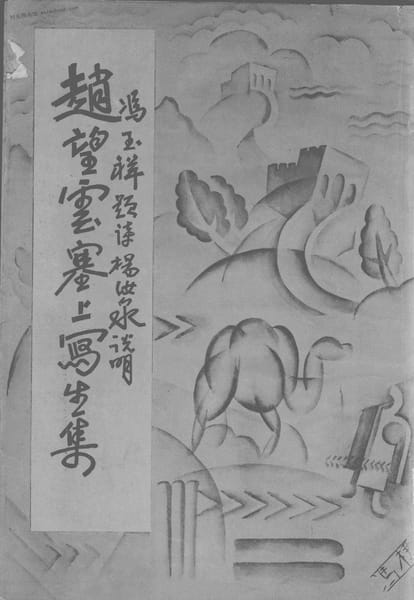 趙望雲塞上寫生集
馮玉祥題詩楊汝泉說明